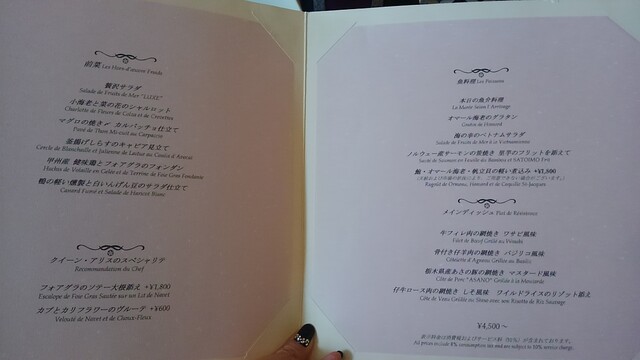 前菜 Les Hors-d'œuvre Froids
贅沢サラダ
Salade de Fruits de Mer "LUXE"
小海老と菜の花のシャルロット
Charlotte de Fleurs de Colza et de Crevettes
マグロの焼き カルパッチョ仕立て
Pavé de Thon Mi-cuit au Carpaccio
釜揚げしらすのキャビア見立て
Cercle de Blanchaille et Julienne de Laitue au
甲州産 健味鶏とフォアグラのフォンダン
Hachis de Volaille en Gelée et de Terrine de Foie Gras Fondante
鴨の軽い燻製と白いんげん豆のサラダ仕立て
Canard Fumé et Salade de Haricot Blanc
クイーン・アリスのスペシャリテ
Recommandation du Chef
フォアグラのソテー大根添え +¥1,800
Escalope de Foie Gras Sautée sur un Lit de Navet
カブとカリフラワーのヴルーテ +¥600
Velouté de Navet et de Choux-Fleur
魚料理 Les Poissons
本日の魚介料理
La Marée Selon l'Arrivage
オマール海老のグラタン
Gratin de Homard
海の幸のベトナムサラダ
Salade de Fruits de Mer à la Vietnamienne
ノルウェー産サーモンの炭焼き 里芋のフリットを添えて
Sucré de Saumon en Feuille au Bambou et SATOIMO Frit
鮑・オマール海老・帆立貝の軽い煮込み +¥1,800
Ragoût de Ormeau, Homard et de Coquille St-Jacques
メインディッシュ Plat de Résistance
牛フィレ肉の網焼き ワサビ風味
Filet de Bœuf Grillé au Wasabi
骨付き仔羊肉の網焼き バジリコ風味
Côtelette d'Agneau Grillée au Basilic
栃木県産あさの豚の網焼き マスタード風味
Côte de Porc "ASANO" Grillée à la Moutarde
仔牛ロース肉の網焼き しそ風味 ワイルドライスのリゾット添え
Côte de Veau Grillée au Shiso avec son Risotto de Riz Sauvage
¥4,500～
表示料金は消費税およびサービス料（10%）が含まれております。
All prices include 8% consumption tax and are subject to 10% service charge.